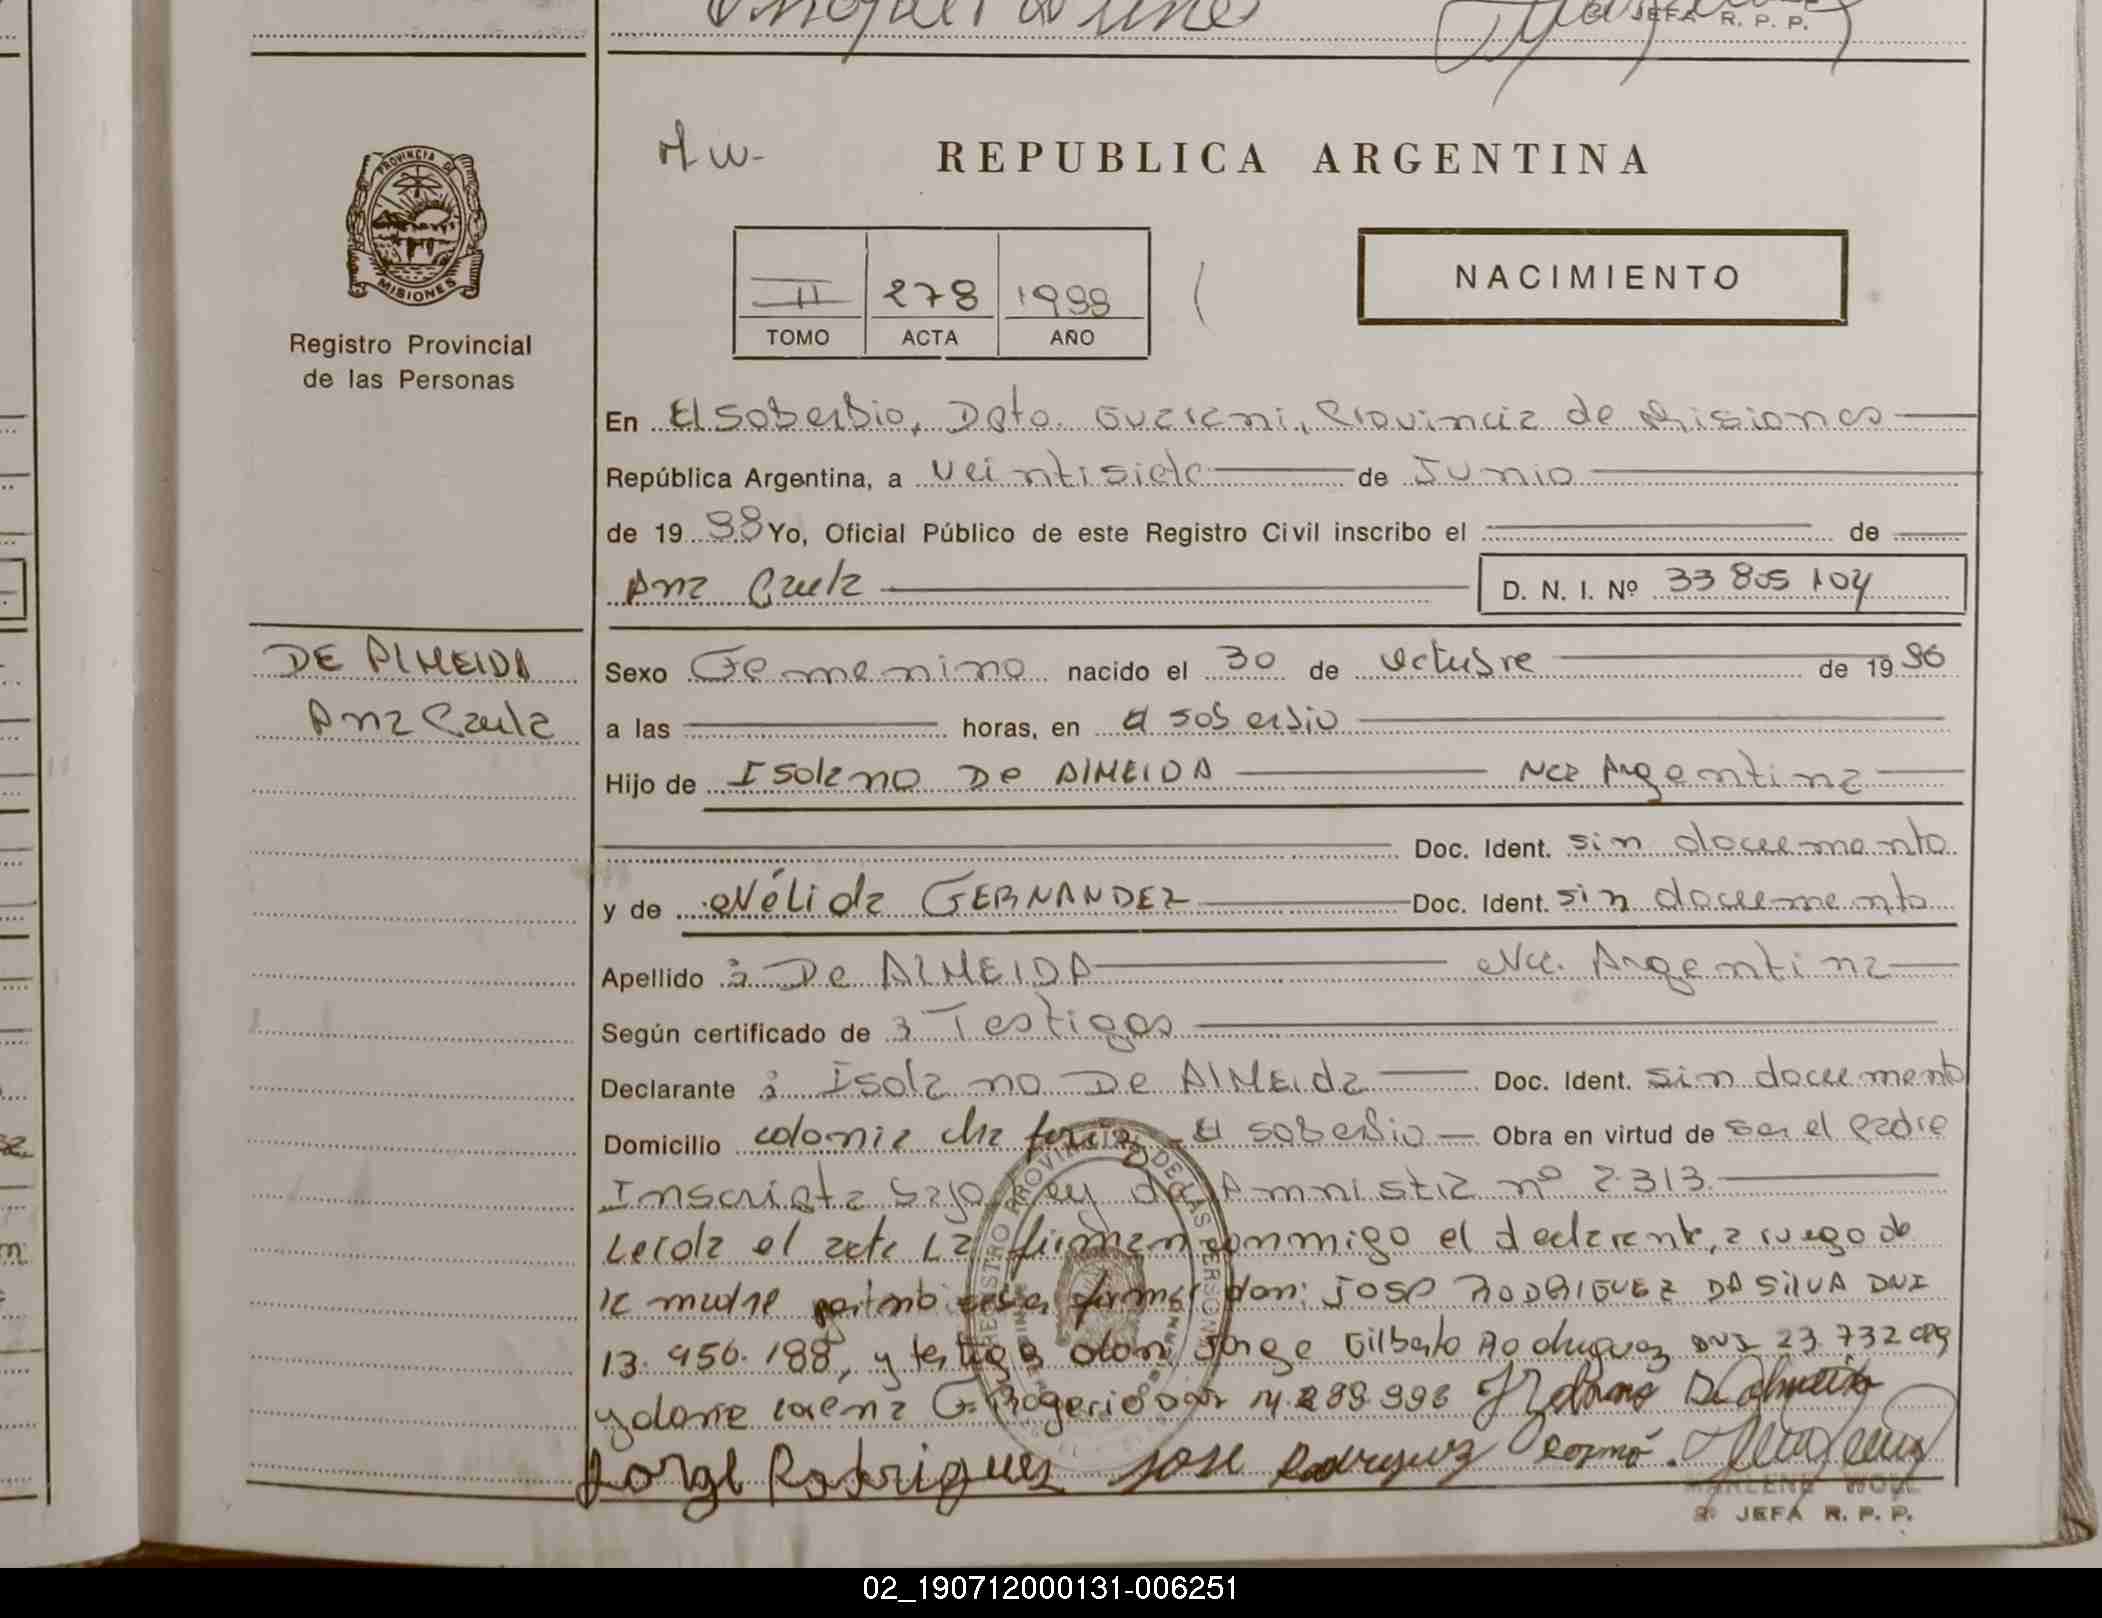 JEFA R. P. P.
PROVINCIA DE
MISIONES
REPUBLICA ARGENTINA
NACIMIENTO
II 278 1998
TOMO ACTA AÑO
Registro Provincial
de las Personas
En El Soberbio, Dpto. Guarani, Provincia de Misiones
República Argentina, a Veintisiete de Junio
de 1998 Yo, Oficial Público de este Registro Civil inscribo el de
Ana Carla D. N. I. Nº 33 805 104
DE ALMEIDA
Ana Carla
Sexo Femenino nacido el 30 de octubre de 1996
a las horas, en El Soberbio
Hijo de Isolano De ALMEIDA Nac Argentina
Doc. Ident. sin documento
y de Nélida FERNANDEZ Doc. Ident. sin documento
Apellido : De ALMEIDA Nac. Argentina
Según certificado de : Testigos
Declarante : Isolano De ALMEIDa Doc. Ident. sin documento
Domicilio colonia El Soberbio Obra en virtud de ser el Padre
Inscripta bajo ley de Amnistia nº 2.313.
Leida el acta La firman conmigo el declarante, a ruego de
la madre por no saber firmar don: JOSE RODRIGUEZ DA SILVA DNI
13.956.188, y testigos don: Jorge Gilberto Rodriguez DNI 23.732
y doña Rogerio DNI 14.289.996
Jorge Rodrigues Jose Rodryguez
MARLENE
JEFA R. P. P.
02_190712000131-006251